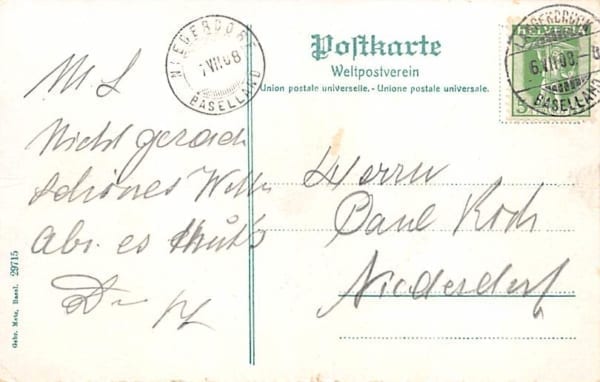 NIEDERDORF
7.VII.08
BASELLAND
Postkarte
Weltpostverein
Union postale universelle. - Unione postale universale.
HELVETIA
5
6.VII.08.-8
BASELLAND
M L
Nicht gerade
schönes Wetter
Aber es thut's
Herrn
Paul Koch
Niederdorf
Gebr. Metz, Basel. 29715